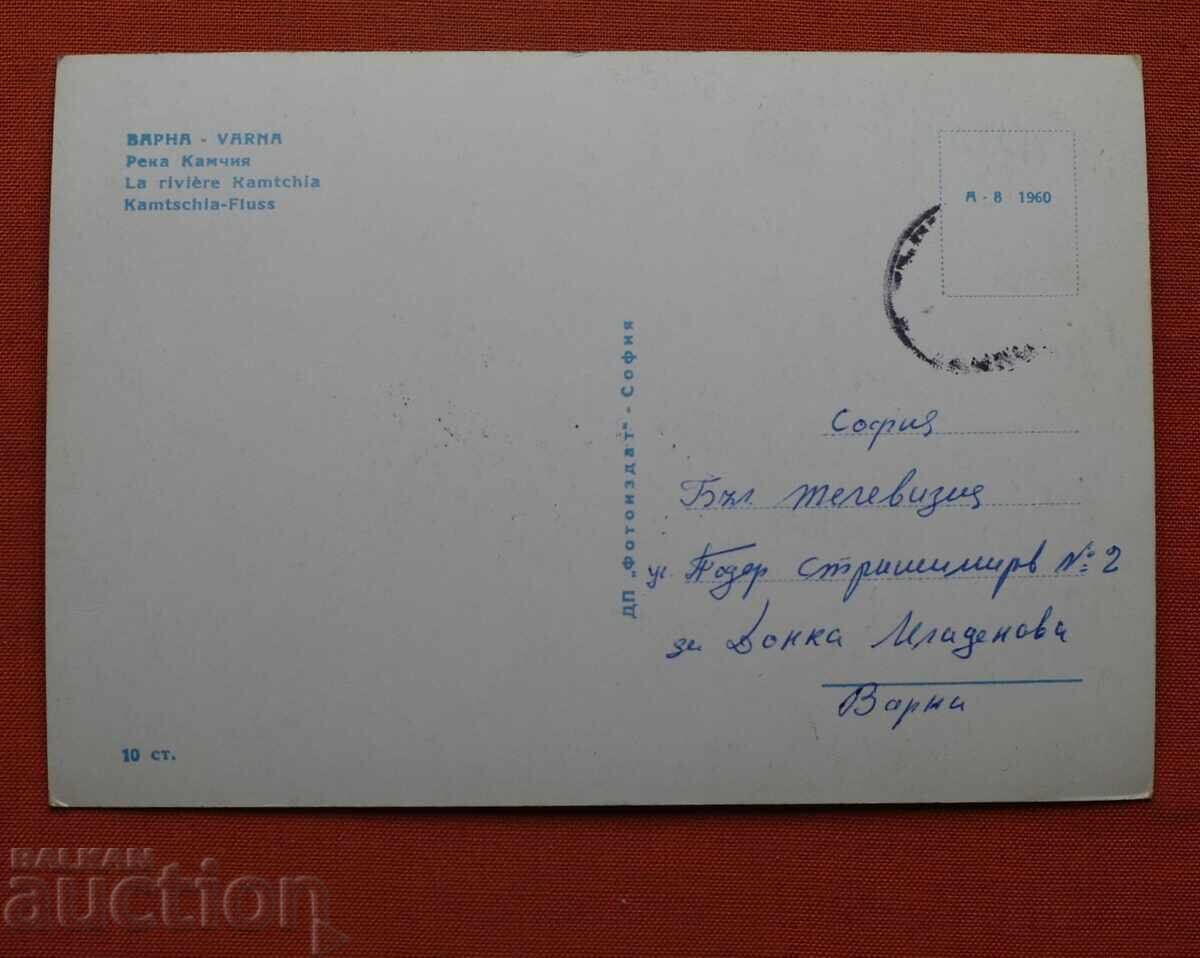 ВАРНА - VARNA
Река Камчия
La rivière Kamtchia
Kamtschia-Fluss
А - 8 1960
ДП „Фотоиздат" - София
София
Бъл. телевизия
ул. Тодор Страшимиров № 2
за Донка Младенова
Варна
10 ст.
BALKAN
auction